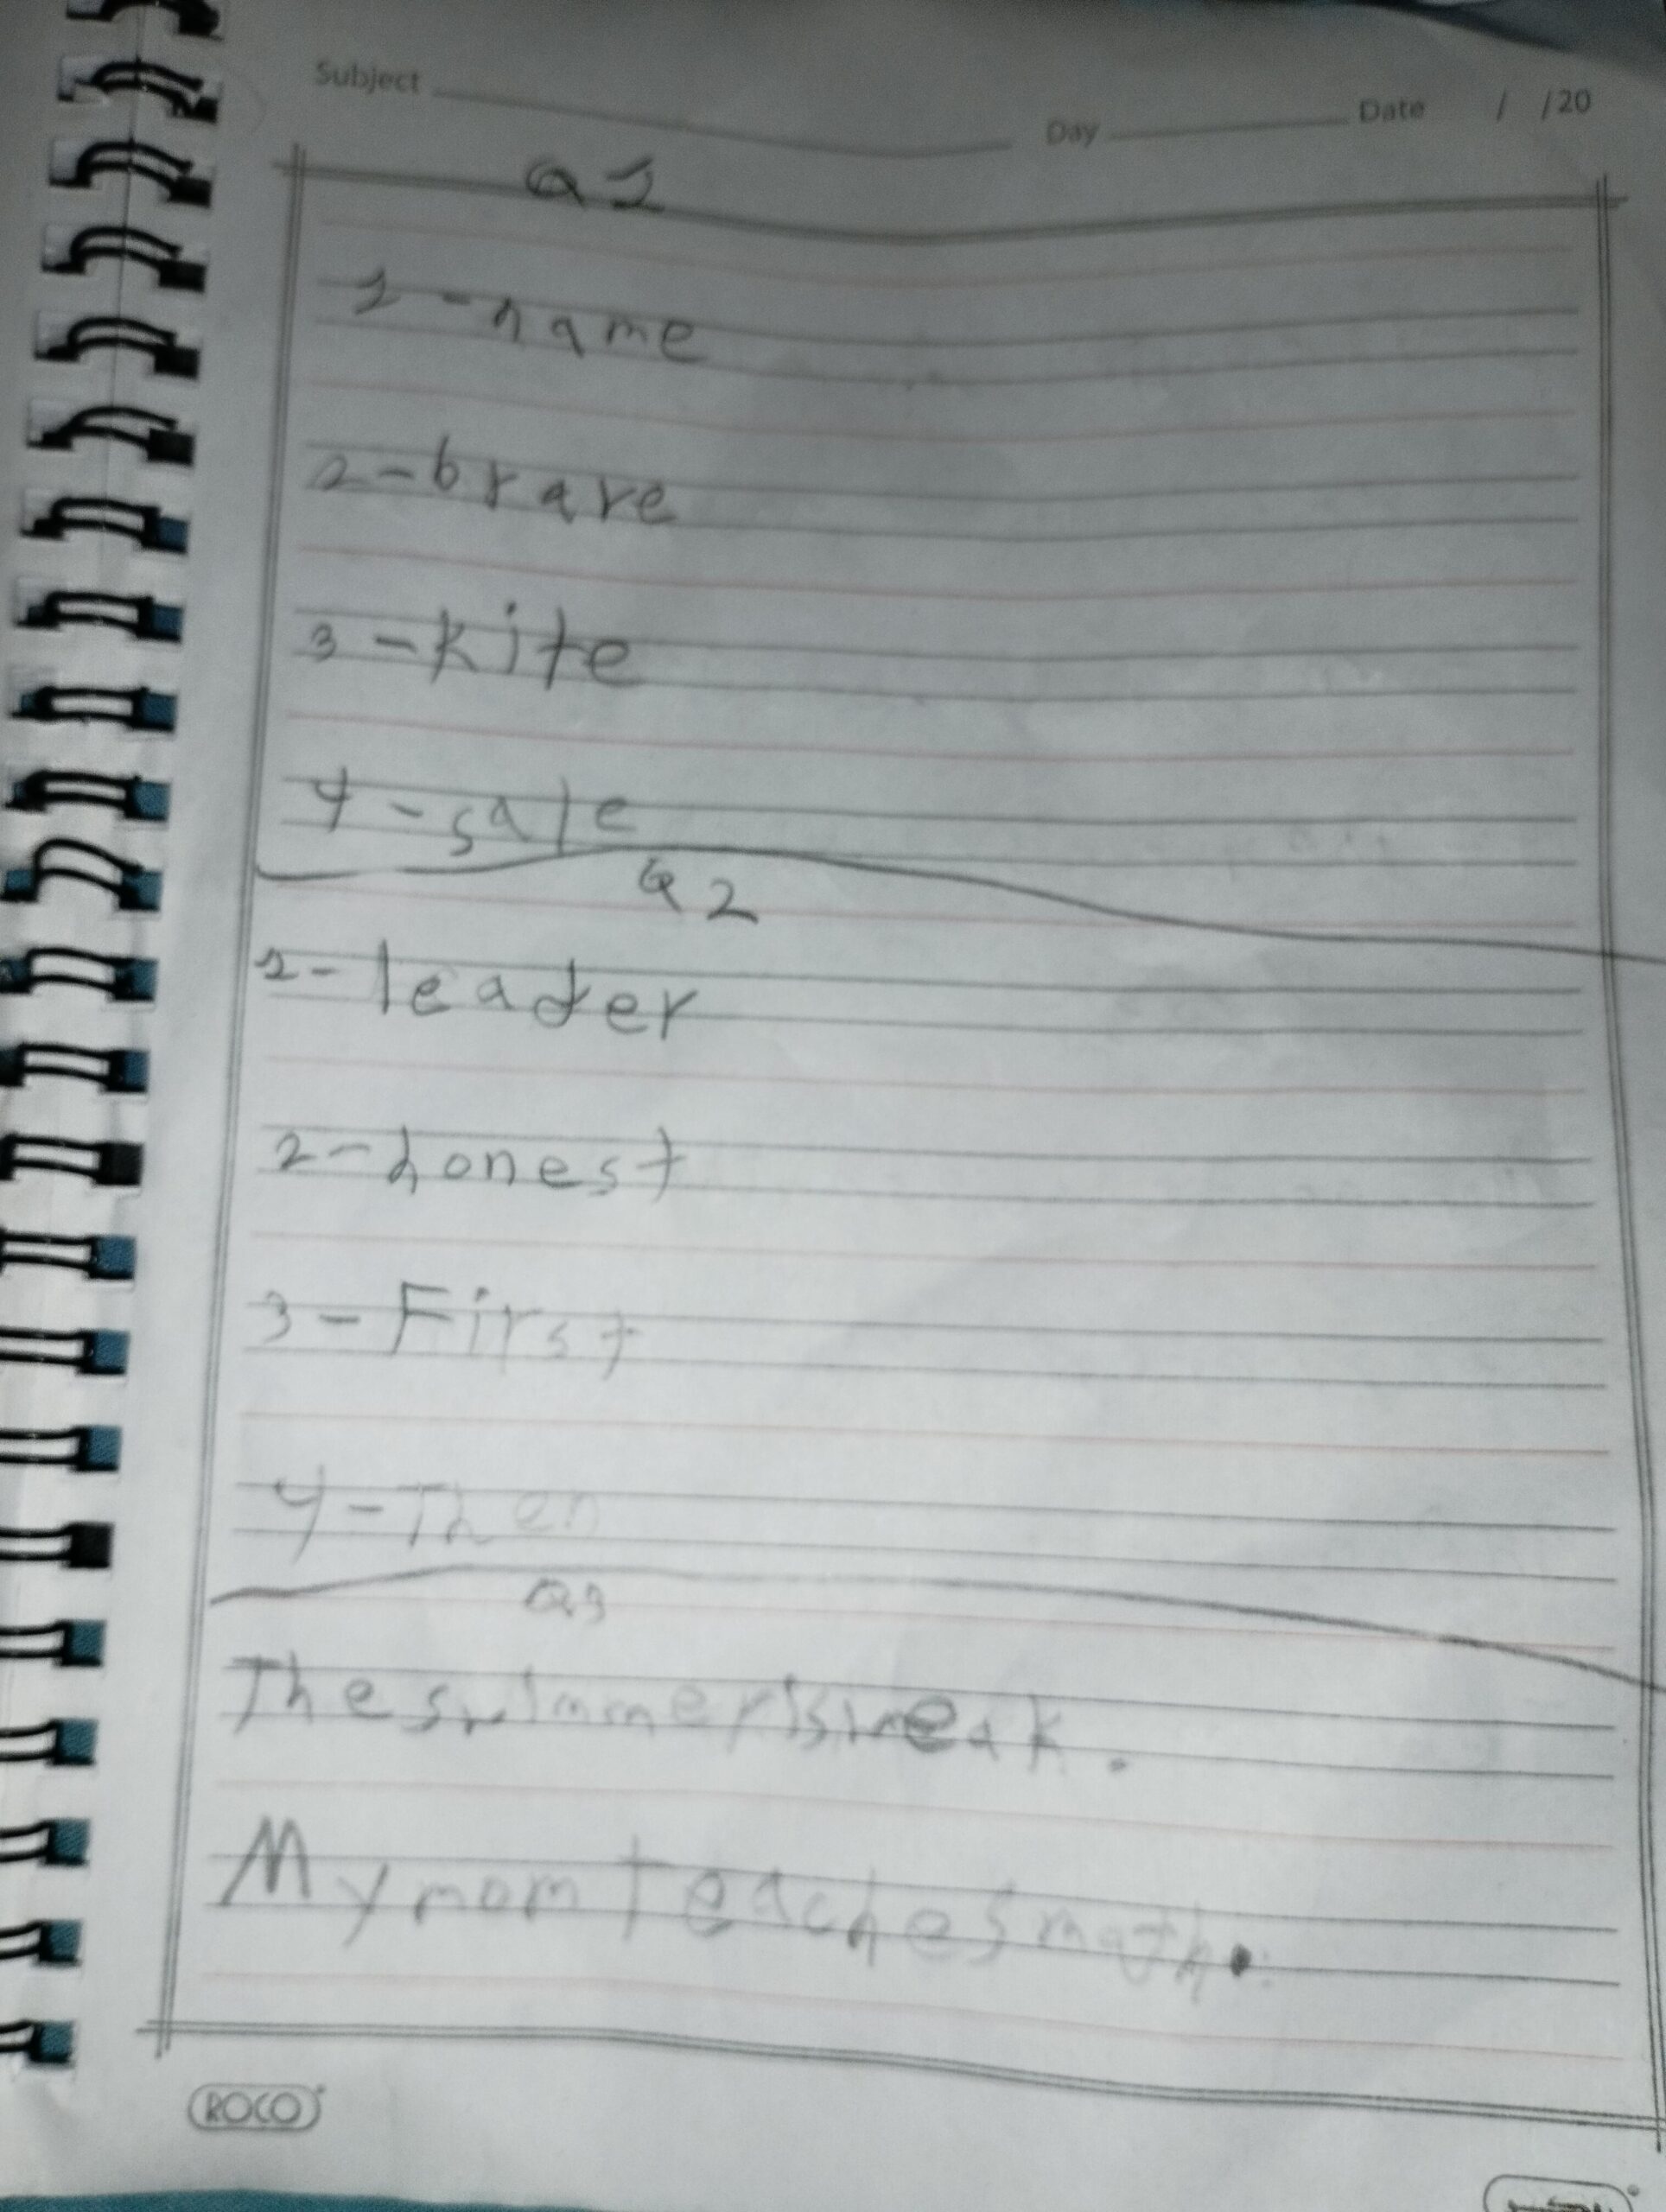 Subject Day Date / /20
Q1
1-name
2-brave
3-kite
4-sale
Q2
1-leader
2-honest
3-First
4-Then
Q3
The swimmer is weak.
My mom teaches math.
ROCO